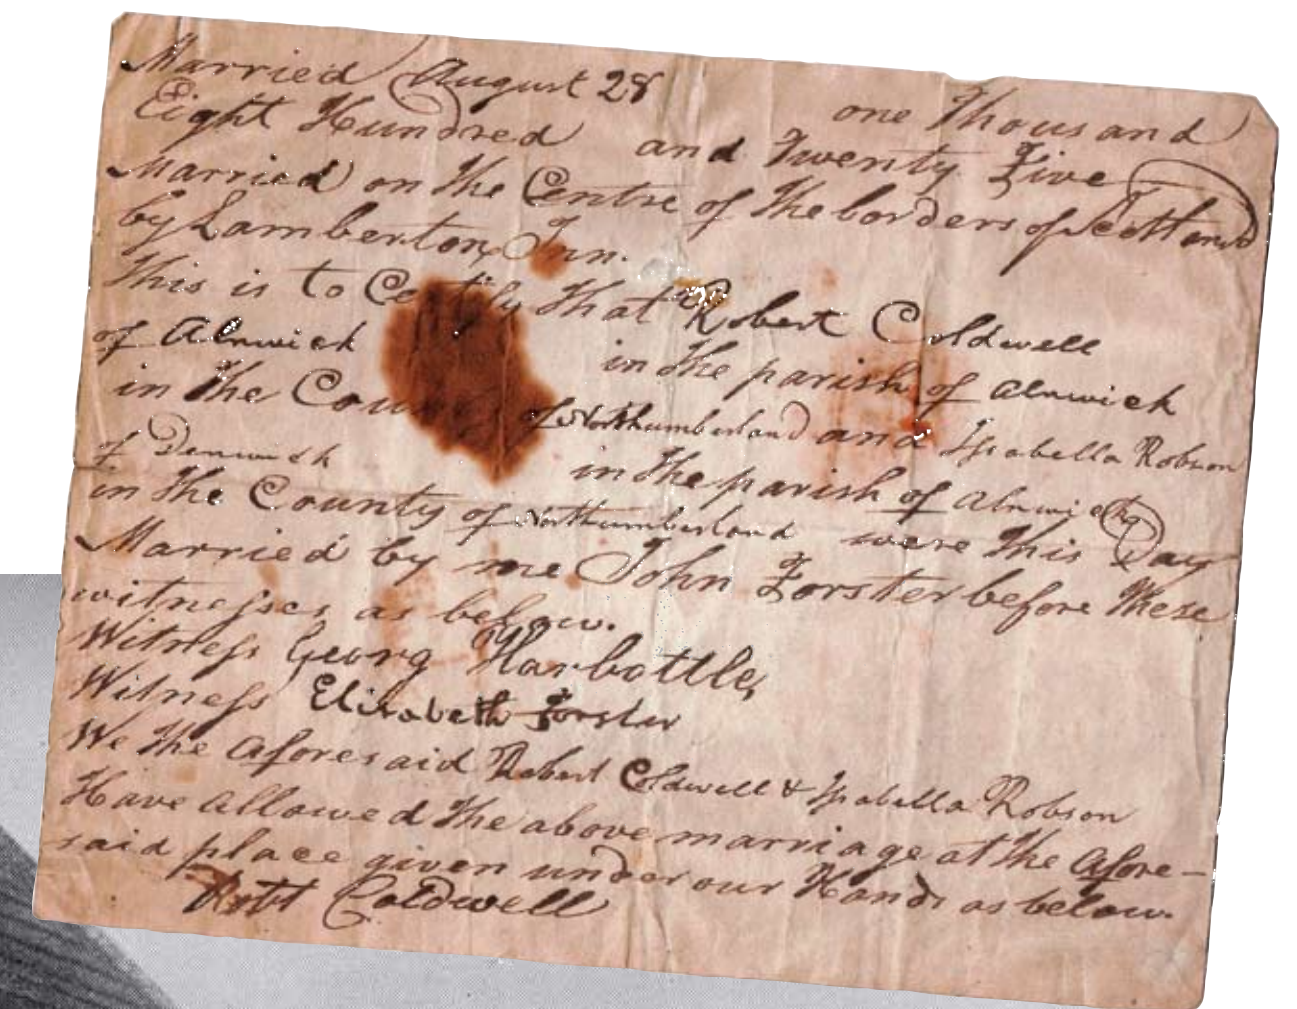 Married August 28 one Thousand
Eight Hundred and Twenty Five
Married on the Centre of the borders of Scotland
by Lamberton Inn.
This is to Certify that Robert Coldwell
of Alnwick in the parish of Alnwick
in the County of Northumberland and Isabella Robson
of Denwick in the parish of Alnwick
in the County of Northumberland were this Day
Married by me John Forster before these
witnesses as below.
Witness Georg Harbottle,
Witness Elizabeth Forster
We the Aforesaid Robert Coldwell & Isabella Robson
Have Allowed the above marriage at the Afore-
said place given under our Hands as below.
Robt Coldwell